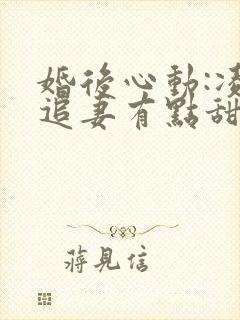 婚後心動:凌
追妻有點甜
蔣見信